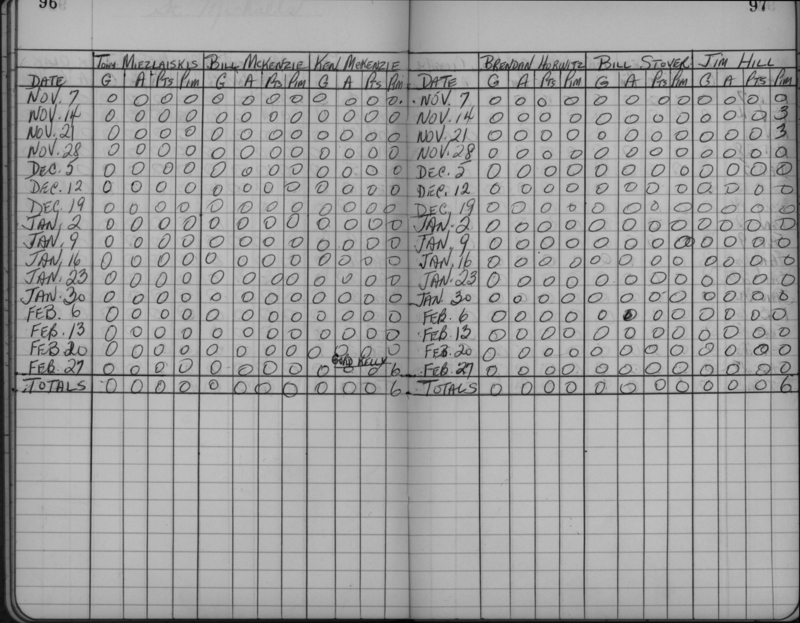 96
TOM MIEZLAISKIS BILL MCKENZIE KEN MCKENZIE
DATE G A Pts Pim G A Pts Pim G A Pts Pim
NOV. 7 0 0 0 0 0 0 0 0 0 0 0 0
NOV. 14 0 0 0 0 0 0 0 0 0 0 0 0
NOV. 21 0 0 0 0 0 0 0 0 0 0 0 0
NOV. 28 0 0 0 0 0 0 0 0 0 0 0 0
DEC. 5 0 0 0 0 0 0 0 0 0 0 0 0
DEC. 12 0 0 0 0 0 0 0 0 0 0 0 0
DEC. 19 0 0 0 0 0 0 0 0 0 0 0 0
JAN. 2 0 0 0 0 0 0 0 0 0 0 0 0
JAN. 9 0 0 0 0 0 0 0 0 0 0 0 0
JAN. 16 0 0 0 0 0 0 0 0 0 0 0 0
JAN. 23 0 0 0 0 0 0 0 0 0 0 0 0
JAN. 30 0 0 0 0 0 0 0 0 0 0 0 0
FEB. 6 0 0 0 0 0 0 0 0 0 0 0 0
FEB. 13 0 0 0 0 0 0 0 0 0 0 0 0
FEB 20 0 0 0 0 0 0 0 0 0 0 0 0
KELLY
FEB. 27 0 0 0 0 0 0 0 0 0 0 0 6
TOTALS 0 0 0 0 0 0 0 0 0 0 0 6
97
BRENDAN HORWITZ BILL STOVER JIM HILL
DATE G A Pts Pim G A Pts Pim G A Pts Pim
NOV. 7 0 0 0 0 0 0 0 0 0 0 0 0
NOV. 14 0 0 0 0 0 0 0 0 0 0 0 3
NOV. 21 0 0 0 0 0 0 0 0 0 0 0 3
NOV. 28 0 0 0 0 0 0 0 0 0 0 0 0
DEC. 5 0 0 0 0 0 0 0 0 0 0 0 0
DEC. 12 0 0 0 0 0 0 0 0 0 0 0 0
DEC. 19 0 0 0 0 0 0 0 0 0 0 0 0
JAN. 2 0 0 0 0 0 0 0 0 0 0 0 0
JAN. 9 0 0 0 0 0 0 0 0 0 0 0 0
JAN. 16 0 0 0 0 0 0 0 0 0 0 0 0
JAN. 23 0 0 0 0 0 0 0 0 0 0 0 0
JAN. 30 0 0 0 0 0 0 0 0 0 0 0 0
FEB. 6 0 0 0 0 0 0 0 0 0 0 0 0
FEB. 13 0 0 0 0 0 0 0 0 0 0 0 0
FEB. 20 0 0 0 0 0 0 0 0 0 0 0 0
FEB. 27 0 0 0 0 0 0 0 0 0 0 0 0
TOTALS 0 0 0 0 0 0 0 0 0 0 0 6